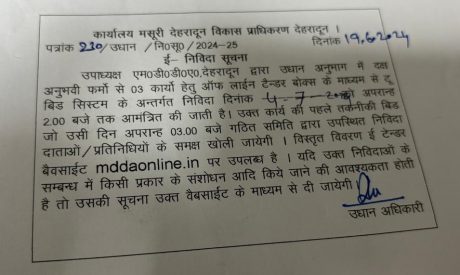 कार्यालय मसूरी देहरादून विकास प्राधिकरण देहरादून ।
पत्रांक 230/उधान /नि०सू०/2024-25 दिनांक 19.6.2024
ई– निविदा सूचना
उपाध्यक्ष एम०डी०डी०ए०देहरादून द्वारा उधान अनुभाग में दक्ष
अनुभवी फर्मो से 03 कार्यो हेतु ऑफ लाईन टैन्डर बोक्स के माध्यम से टू
बिड सिस्टम के अन्तर्गत निविदा दिनांक 4-7-2024 को अपरान्ह
2.00 बजे तक आमंत्रित की जाती है। उक्त कार्य की पहले तकनीकी बिड
जो उसी दिन अपरान्ह 03.00 बजे गठित समिति द्वारा उपस्थित निविदा
दाताओ/प्रतिनिधियों के समक्ष खोली जायेगी । विस्तृत विवरण ई टेन्डर
बैवसाईट mddaonline.in पर उपलब्ध है । यदि उक्त निविदाओं के
सम्बन्ध में किसी प्रकार के संशोधन आदि किये जाने की आवश्यकता होती
है तो उसकी सूचना उक्त वैबसाईट के माध्यम से दी जायेगी।
उधान अधिकारी